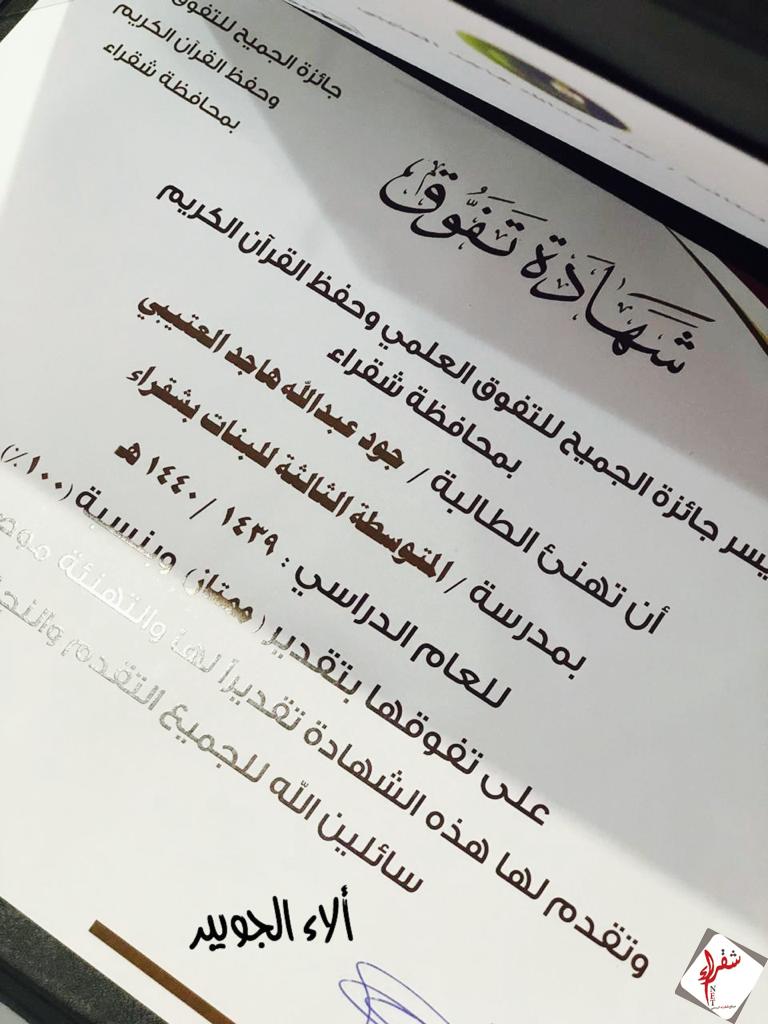 جائزة الجميح للتفوق
وحفظ القرآن الكريم
بمحافظة شقراء
شهادة تفوق
يسر جائزة الجميح للتفوق العلمي وحفظ القرآن الكريم
بمحافظة شقراء
أن تهنئ الطالبة / جود عبدالله هاجد العتيبي
بمدرسة / المتوسطة الثالثة للبنات بشقراء
للعام الدراسي : ١٤٣٩ / ١٤٤٠ هـ
على تفوقها بتقدير ( ممتاز ) وبنسبة ( ١٠٠ ٪ )
وتقدم لها هذه الشهادة تقديراً لها والتهنئة
سائلين الله للجميع التقدم
ألاء الجويبر
شقراء
NET